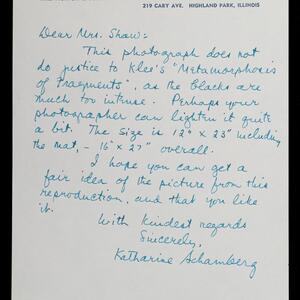 219 CARY AVE. HIGHLAND PARK, ILLINOIS
Dear Mrs. Shaw:
This photograph does not
do justice to Klee's "Metamorphosis
of Fragments", as the blacks are
much too intense. Perhaps your
photographer can lighten it quite
a bit. The size is 12" x 23" including
the mat, – 16" x 27" overall.
I hope you can get a
fair idea of the picture from this
reproduction, and that you like
it.
With kindest regards
Sincerely,
Katharine Schamberg